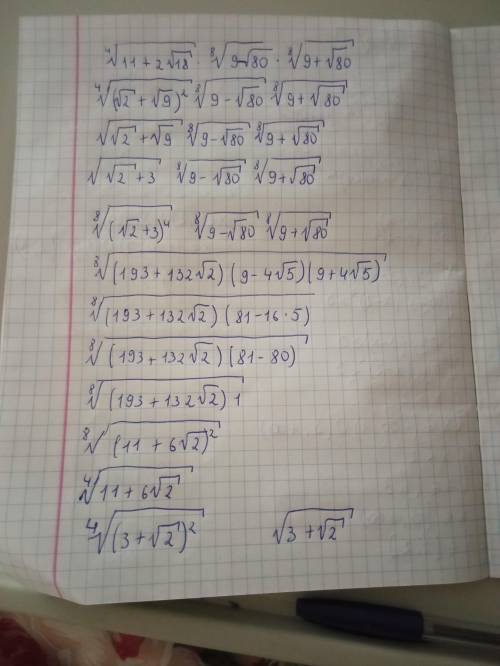 ⁴√(11 + 2√18) · ⁸√(9-√80) · ⁸√(9 + √80)
⁴√((√2 + √9)²) ⁸√(9 - √80) ⁸√(9 + √80)
√(√2 + √9) ⁸√(9 - √80) ⁸√(9 + √80)
√(√2 + 3) ⁸√(9 - √80) ⁸√(9 + √80)
⁸√((√2 + 3)⁴) ⁸√(9 - √80) ⁸√(9 + √80)
⁸√((193 + 132√2) (9 - 4√5) (9 + 4√5))
⁸√((193 + 132√2) (81 - 16 · 5))
⁸√((193 + 132√2) (81 - 80))
⁸√((193 + 132√2) 1)
⁸√((11 + 6√2)²)
⁴√(11 + 6√2)
⁴√((3 + √2)²) √(3 + √2)